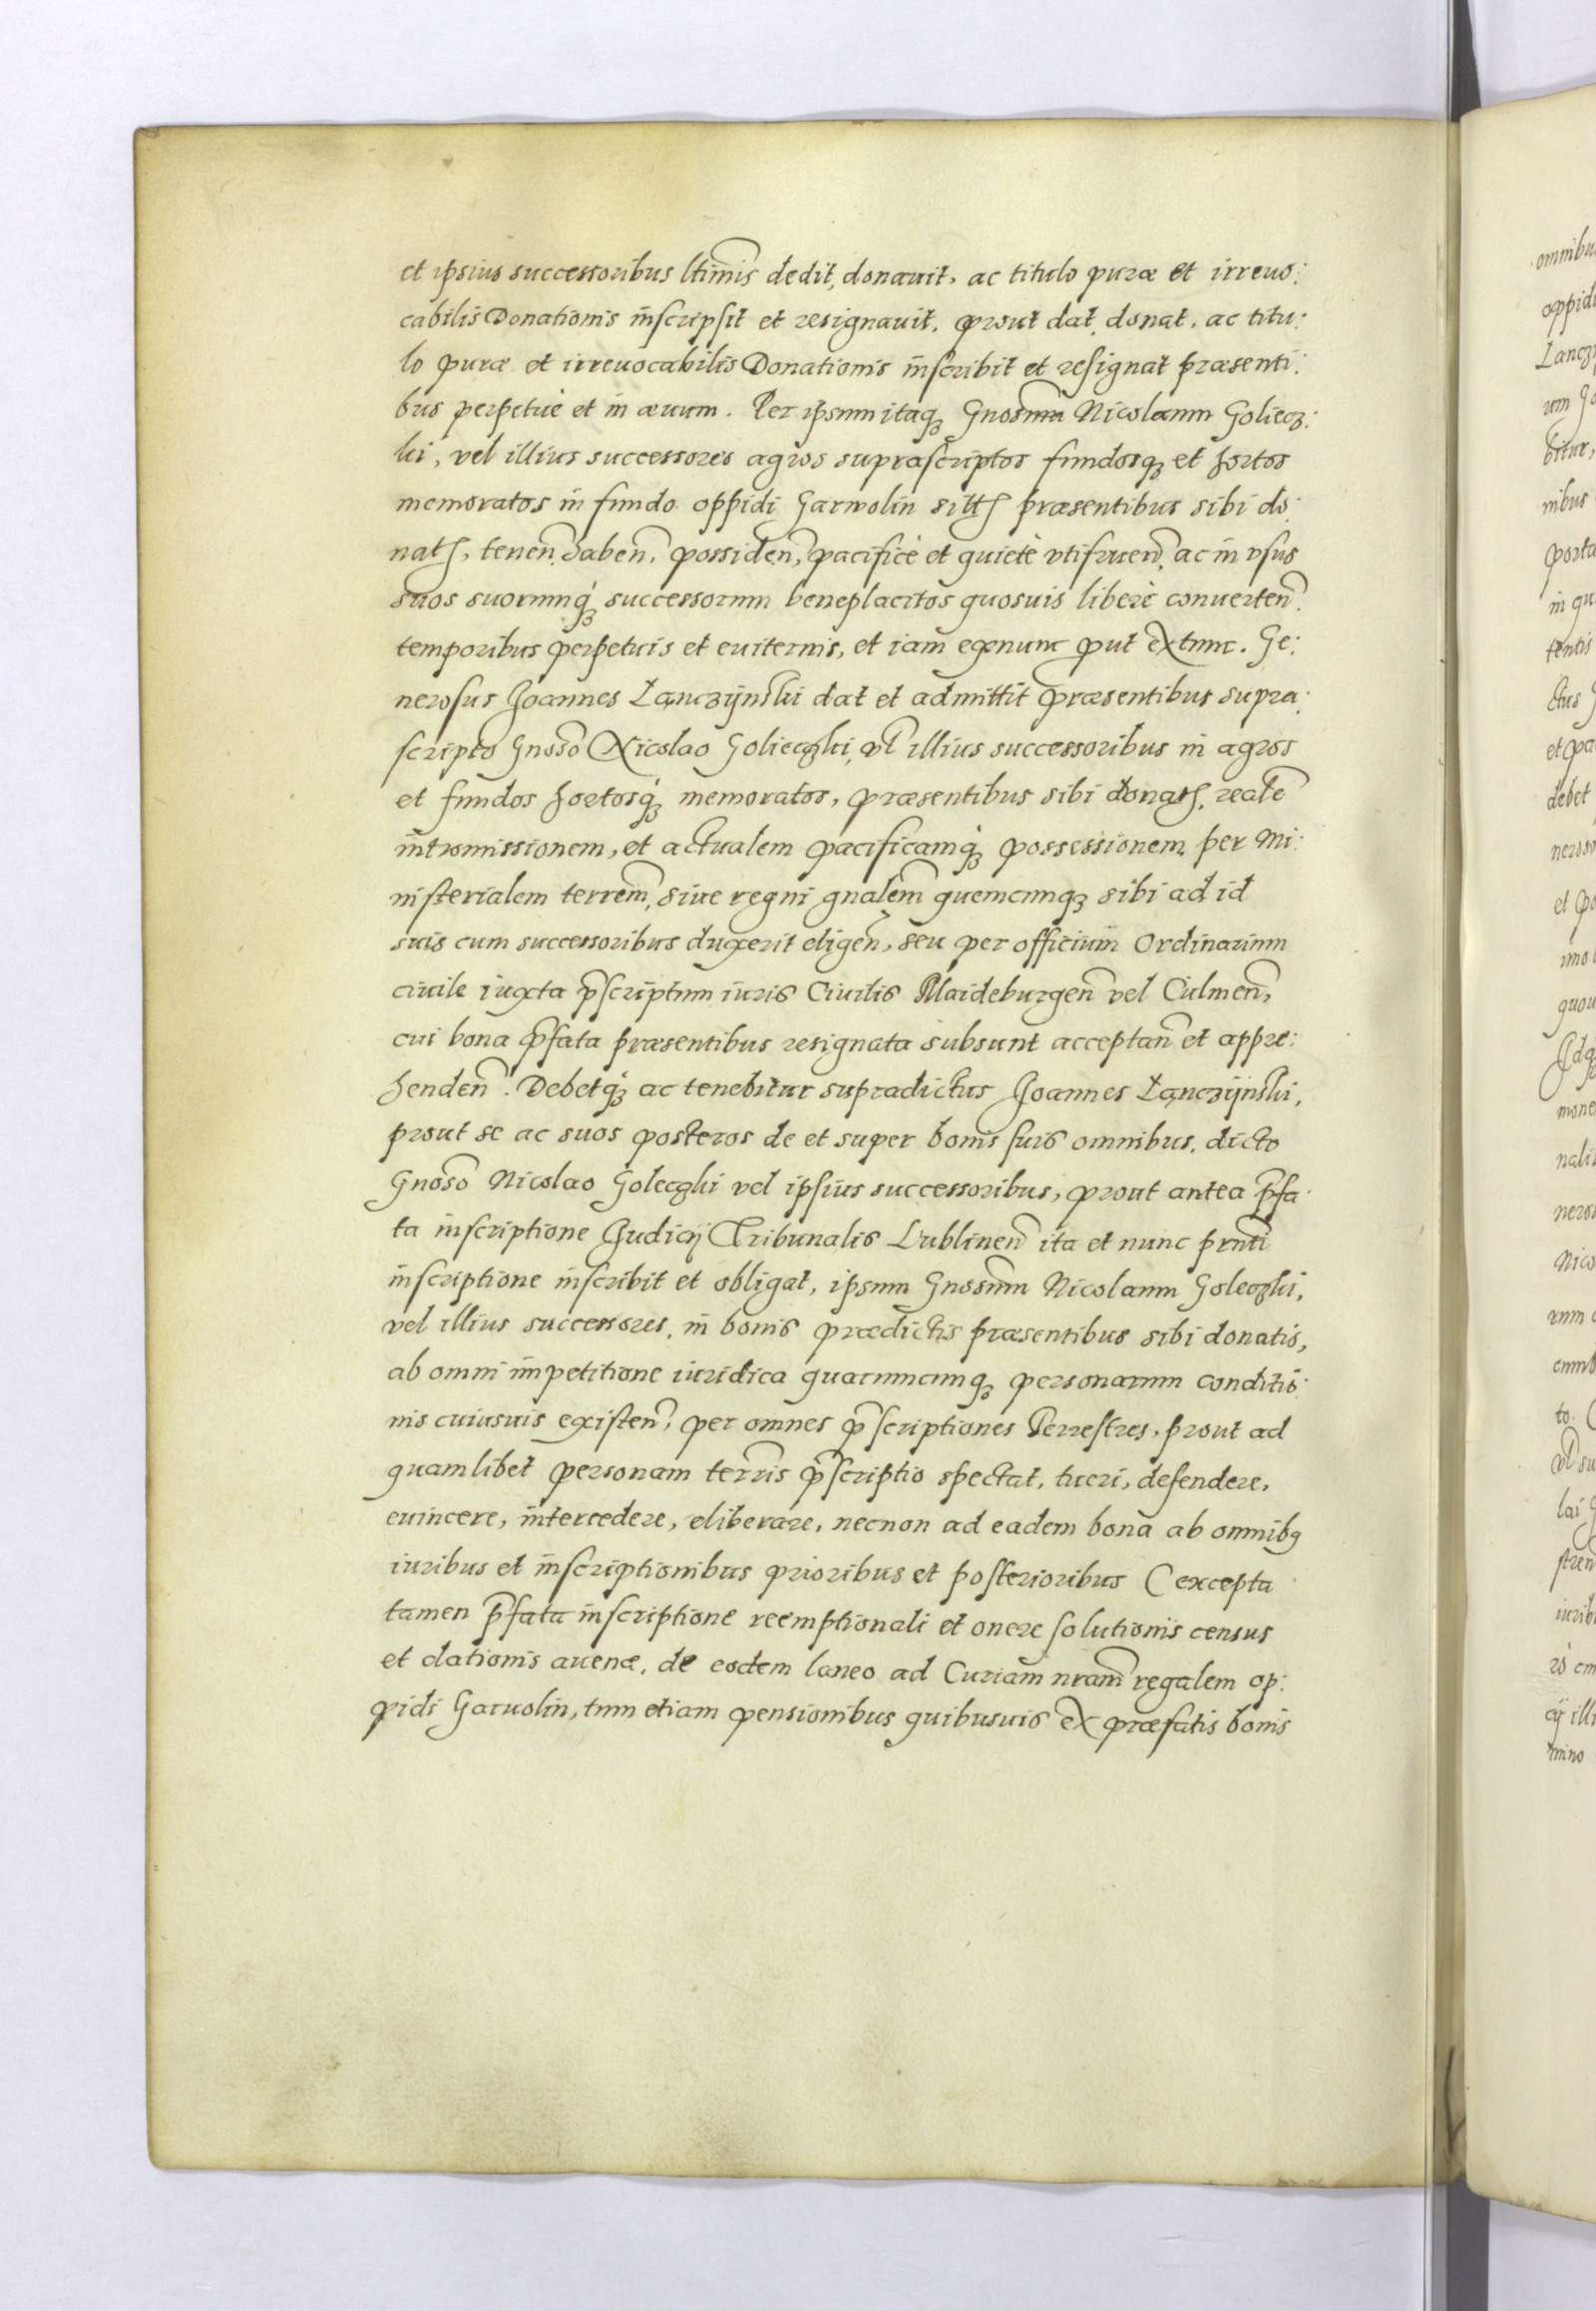 et ipsius successoribus ltimis dedit, donauit, ac titulo puræ et irreuo:
cabilis Donationis inscripsit et resignauit, prout dat, donat, ac titu:
lo puræ et irreuocabilis Donationis inscribit et resignat præsenti:
bus perpetuè et in æuum. Per ipsum itaq; Gnosum Nicolaum Goliecz:
ki, vel illius successores agros suprascriptos fundosq; et hortos
memoratos in fundo oppidi Garwolin sitt, præsentibus sibi do:
nat, tenen̄, haben̄, possiden̄, pacificè et quietè vtifruen̄, ac in vsus
suos suorumq; successorum beneplacitos quosuis liberè conuerten̄.
temporibus perpetuis et euiternis, et iam exnunc put extunc. Ge:
nerosus Joannes Łanczÿnski dat et admittit præsentibus supra:
scripto Gnoso Nicolao Golieczki, vl illius successoribus in agros
et fundos hortosq; memoratos, præsentibus sibi donat, realē
intromissionem, et actualem pacificamq; possessionem, per Mi:
nisterialem terrem̄, siue regni gnalem̄ quemcunq; sibi ad id
suis cum successoribus duxerit eligen̄, seu per officium Ordinarium
ciuile iuxta p̄scriptum iuris Ciuilis Maideburgen̄ vel Culmen̄,
cui bona p̄fata præsentibus resignata subsunt acceptan̄ et appre:
henden̄. Debetq; ac tenebitur supradictus Joannes Łanczÿnski,
prout se ac suos posteros de et super bonis suis omnibus, dicto
Gnoso Nicolao Goleczki vel ipsius successoribus, prout antea p̄fa:
ta inscriptione Judicÿ Tribunalis Lublinen̄ ita et nunc prnti
inscriptione inscribit et obligat, ipsum Gnosum Nicolaum Goleczki,
vel illius successores, in bonis prædictis præsentibus sibi donatis,
ab omni impetitione iuridica quarumcunq; personarum conditio:
nis cuiusuis existen̄, per omnes p̄scriptiones Terrestres, prout ad
quamlibet personam terris p̄scriptio spectat, tueri, defendere,
euincere, intercedere, eliberare, necnon ad eadem bona ab omnibq
iuribus et inscriptionibus prioribus et posterioribus (excepta
tamen p̄fata inscriptione reemptionali et onere solutionis census
et dationis auenæ, de eodem laneo ad Curiam nram̄ regalem op:
pidi Garuolin, tum etiam pensionibus quibusuis ex præfatis bonis